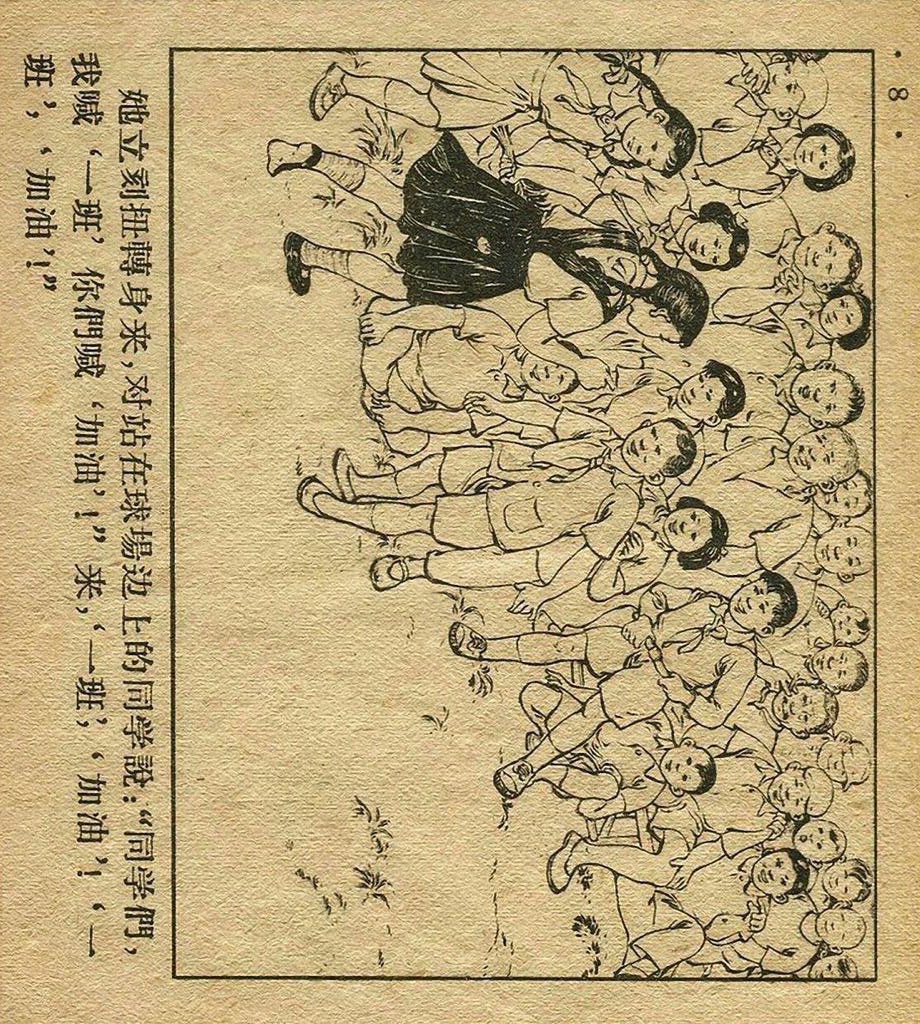 · 8 ·
她立刻扭轉身来,对站在球場边上的同学說:“同学們,
我喊‘一班’你們喊‘加油’!”来,‘一班’,‘加油’!‘一
班’,‘加油’!”